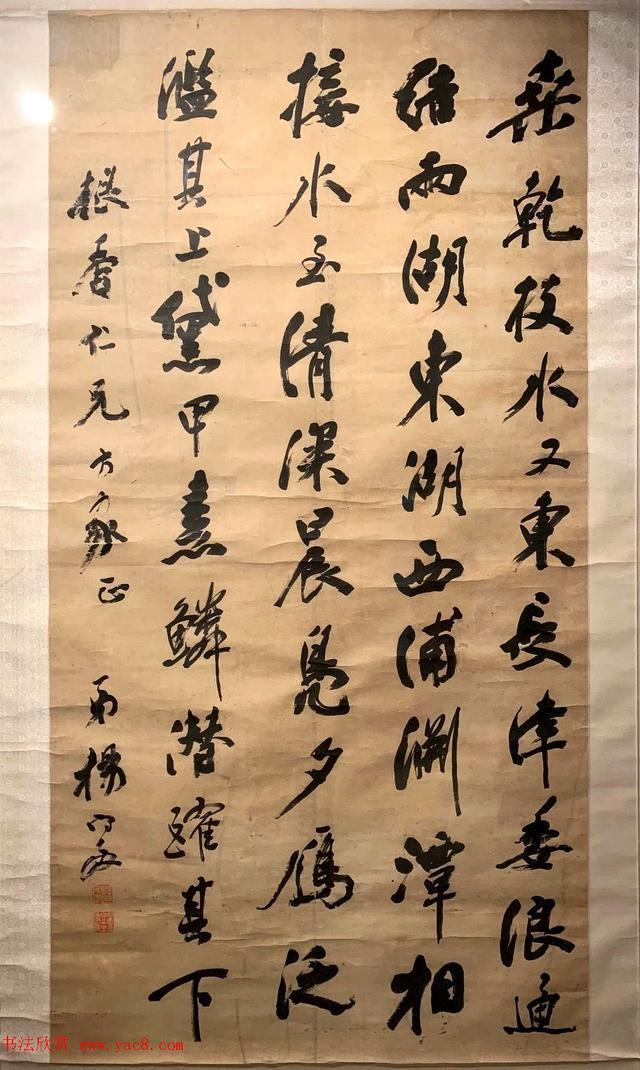 桑乾枝水又東長津委浪通
结兩湖東湖西浦渊潭相
接水至清深晨鳧夕鴈泛
濫其上黛甲素鱗潛躍其下
仁兄方家正
弟楊守敬
书法欣赏 www.yac8.com